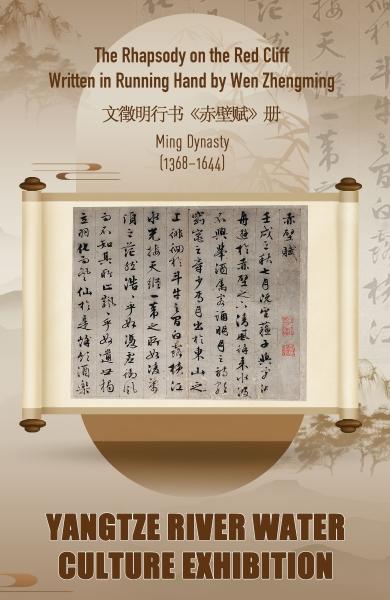 The Rhapsody on the Red Cliff
Written in Running Hand by Wen Zhengming
文徵明行书《赤壁赋》册
Ming Dynasty
(1368–1644)
赤壁賦
壬戌之秋七月既望蘇子與客泛
舟遊於赤壁之下清風徐來水波
不興舉酒屬客誦明月之詩歌
窈窕之章少焉月出於東山之
上徘徊於斗牛之間白露橫江
水光接天縱一葦之所如凌萬
頃之茫然浩〻乎如馮虛御風
而不知其所止飄〻乎如遺世獨
立羽化而登仙於是飲酒樂
YANGTZE RIVER WATER
CULTURE EXHIBITION